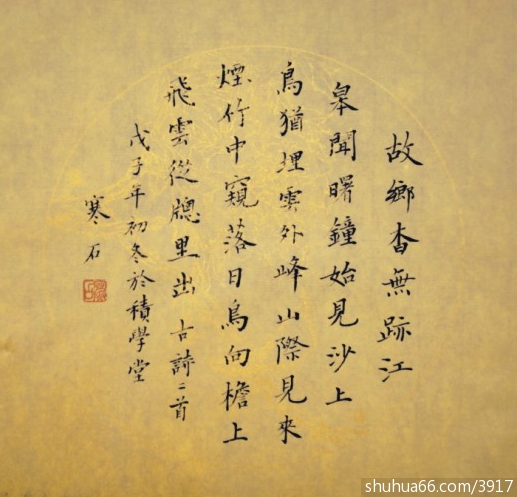 故鄉杳無跡江
皋聞曙鐘始見沙上
鳥猶埋雲外峰山際見來
煙竹中窺落日鳥向檐上
飛雲從牕里出 古詩二首
戊子年初冬於積學堂
寒石
shuhua66.com/3917